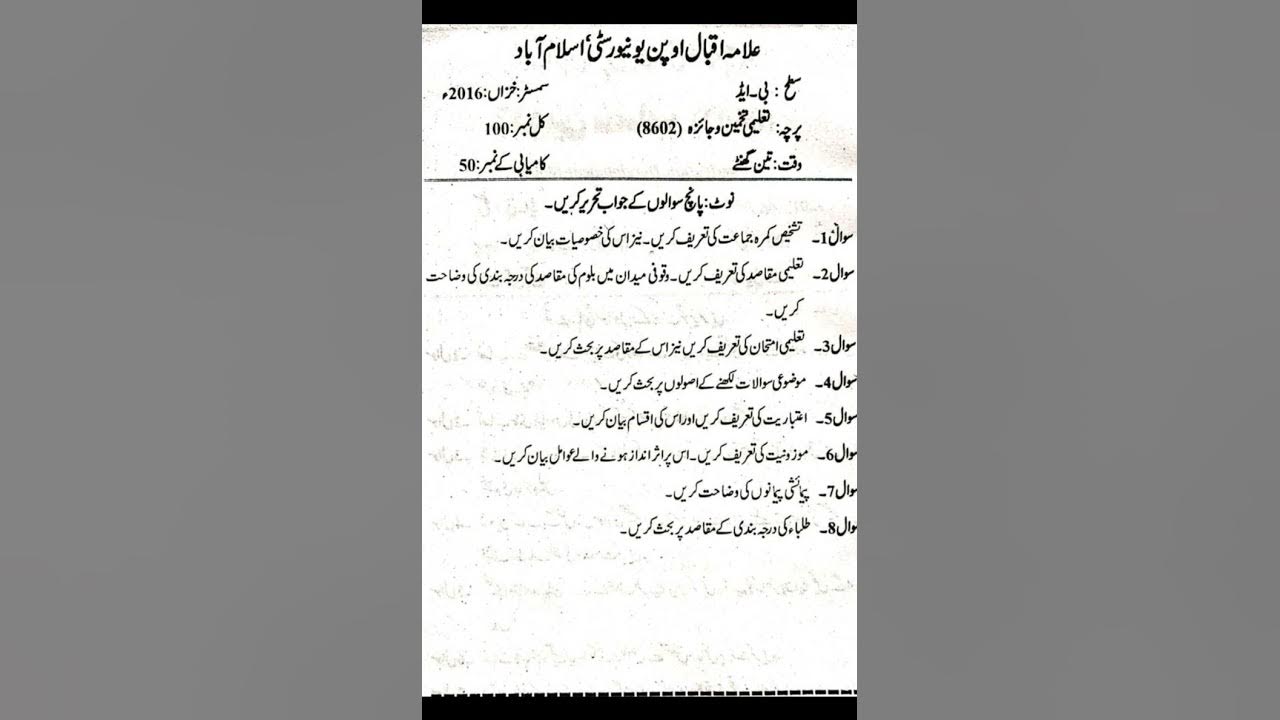 علامہ اقبال اوپن یونیورسٹی اسلام آباد
سطح : بی۔ایڈ سمسٹر:خزاں:2016ء
پرچہ: تعلیمی تخمین و جائزہ (8602) کل نمبر:100
وقت: تین گھنٹے کامیابی کے نمبر:50
نوٹ: پانچ سوالوں کے جواب تحریر کریں۔
سوال 1۔ تشخیص کمرہ جماعت کی تعریف کریں۔ نیز اس کی خصوصیات بیان کریں۔
سوال 2۔ تعلیمی مقاصد کی تعریف کریں۔ وقوفی میدان میں بلوم کی مقاصد کی درجہ بندی کی وضاحت
کریں۔
سوال 3۔ تعلیمی امتحان کی تعریف کریں نیز اس کے مقاصد پر بحث کریں۔
سوال 4۔ موضوعی سوالات لکھنے کے اصولوں پر بحث کریں۔
سوال 5۔ اعتباریت کی تعریف کریں اور اس کی اقسام بیان کریں۔
سوال 6۔ موزونیت کی تعریف کریں۔ اس پر اثر انداز ہونے والے عوامل بیان کریں۔
سوال 7۔ پیمائشی پیمانوں کی وضاحت کریں۔
سوال 8۔ طلباء کی درجہ بندی کے مقاصد پر بحث کریں۔